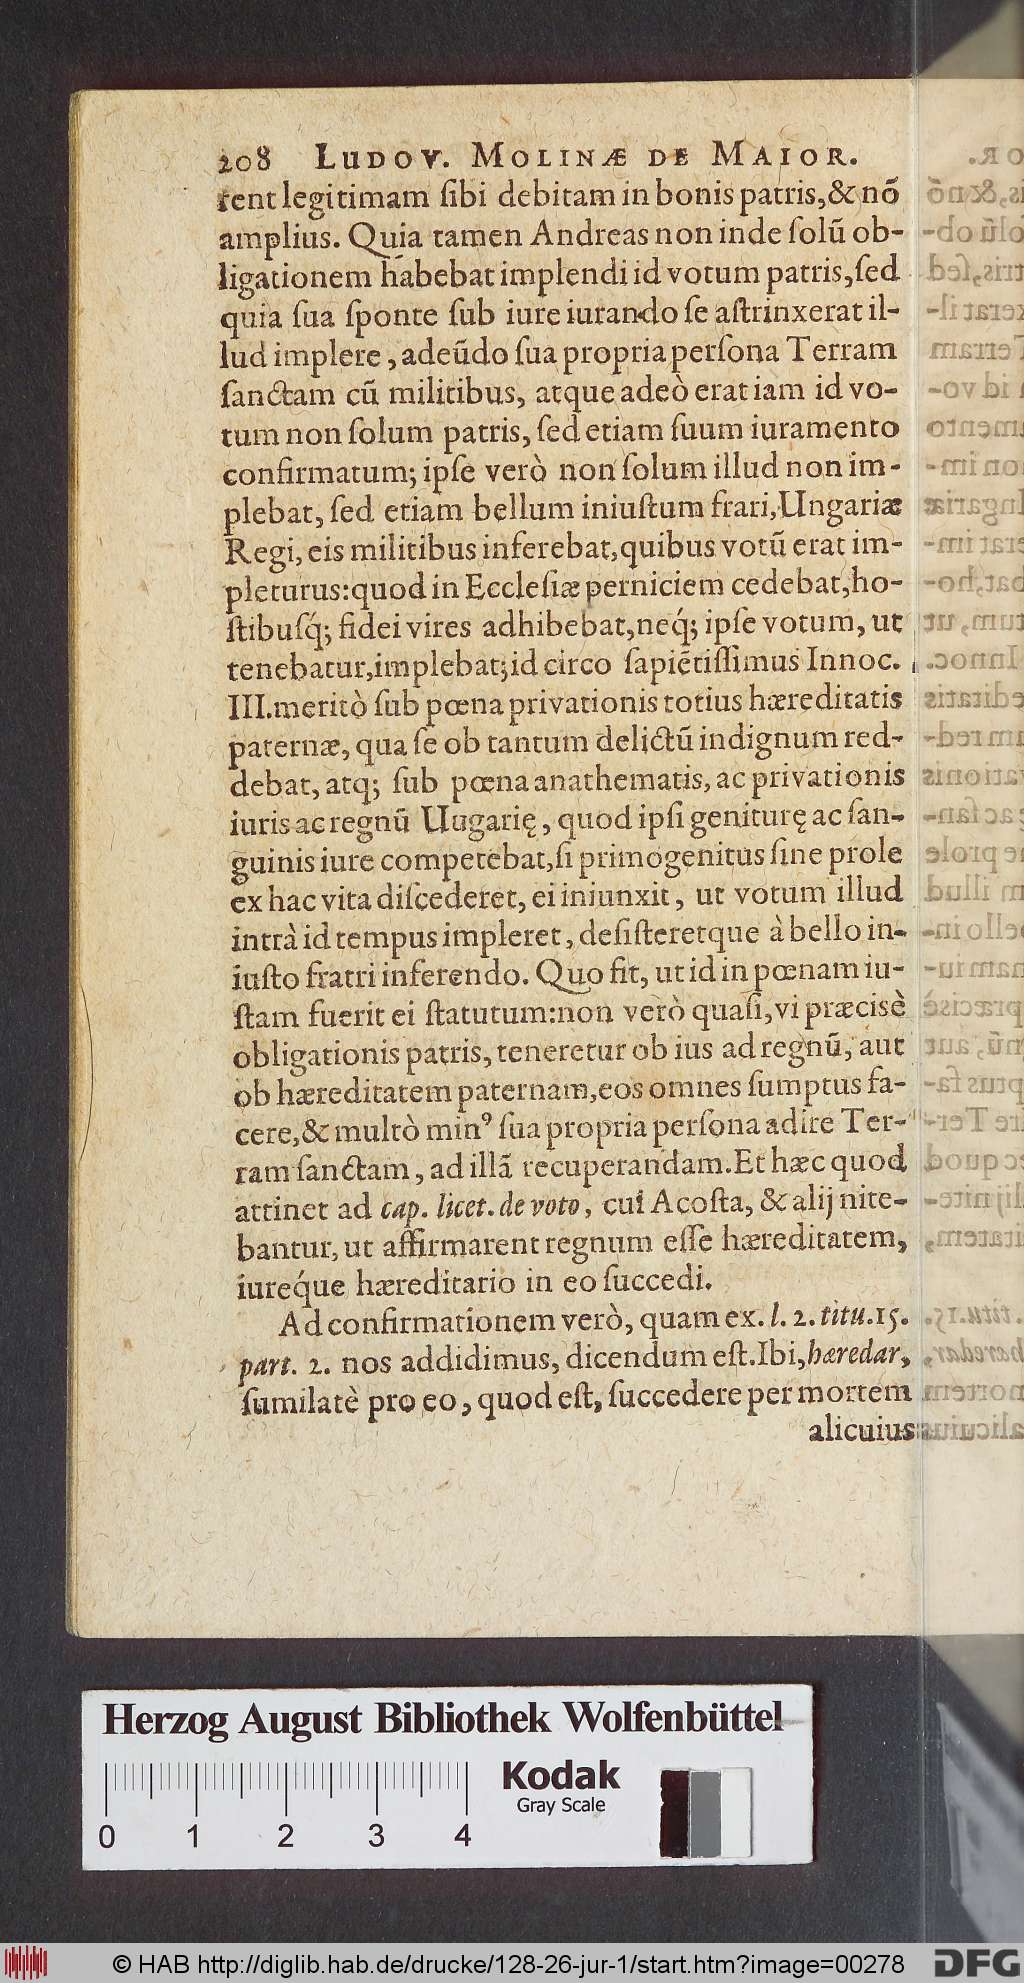 208 LUDOV. MOLINÆ DE MAIOR.
rent legitimam ſibi debitam in bonis patris, & nõ
amplius. Quia tamen Andreas non inde ſolũ ob-
ligationem habebat implendi id votum patris, ſed
quia ſua ſponte ſub iure iurando ſe aſtrinxerat il-
lud implere, adeũdo ſua propria perſona Terram
ſanctam cũ militibus, atque adeò erat iam id vo-
tum non ſolum patris, ſed etiam ſuum iuramento
confirmatum; ipſe verò non ſolum illud non im-
plebat, ſed etiam bellum iniuſtum frari, Ungariæ
Regi, eis militibus inferebat, quibus votũ erat im-
pleturus: quod in Eccleſiæ perniciem cedebat, ho-
ſtibuſq́; fidei vires adhibebat, neq́; ipſe votum, ut
tenebatur, implebat; id circo ſapiẽtiſſimus Innoc.
III. meritò ſub pœna privationis totius hæreditatis
paternæ, qua ſe ob tantum delictũ indignum red-
debat, atq; ſub pœna anathematis, ac privationis
iuris ac regnũ Uugarię, quod ipſi geniturę ac ſan-
guinis iure competebat, ſi primogenitus ſine prole
ex hac vita diſcederet, ei iniunxit, ut votum illud
intrà id tempus impleret, deſiſteretque à bello in-
iuſto fratri inferendo. Quo fit, ut id in pœnam iu-
ſtam fuerit ei ſtatutum: non verò quaſi, vi præcisè
obligationis patris, teneretur ob ius ad regnũ, aut
ob hæreditatem paternam, eos omnes ſumptus fa-
cere, & multò minꝰ ſua propria perſona adire Ter-
ram ſanctam, ad illã recuperandam. Et hæc quod
attinet ad cap. licet. de voto, cui Acoſta, & alij nite-
bantur, ut affirmarent regnum eſſe hæreditatem,
iureq́ue hæreditario in eo ſuccedi.
Ad confirmationem verò, quam ex. l. 2. titu. 15.
part. 2. nos addidimus, dicendum eſt. Ibi, hæredar,
ſumilatè pro eo, quod eſt, ſuccedere per mortem
alicuius
Herzog August Bibliothek Wolfenbüttel
Kodak
Gray Scale
0 1 2 3 4
© HAB http://diglib.hab.de/drucke/128-26-jur-1/start.htm?image=00278
DFG